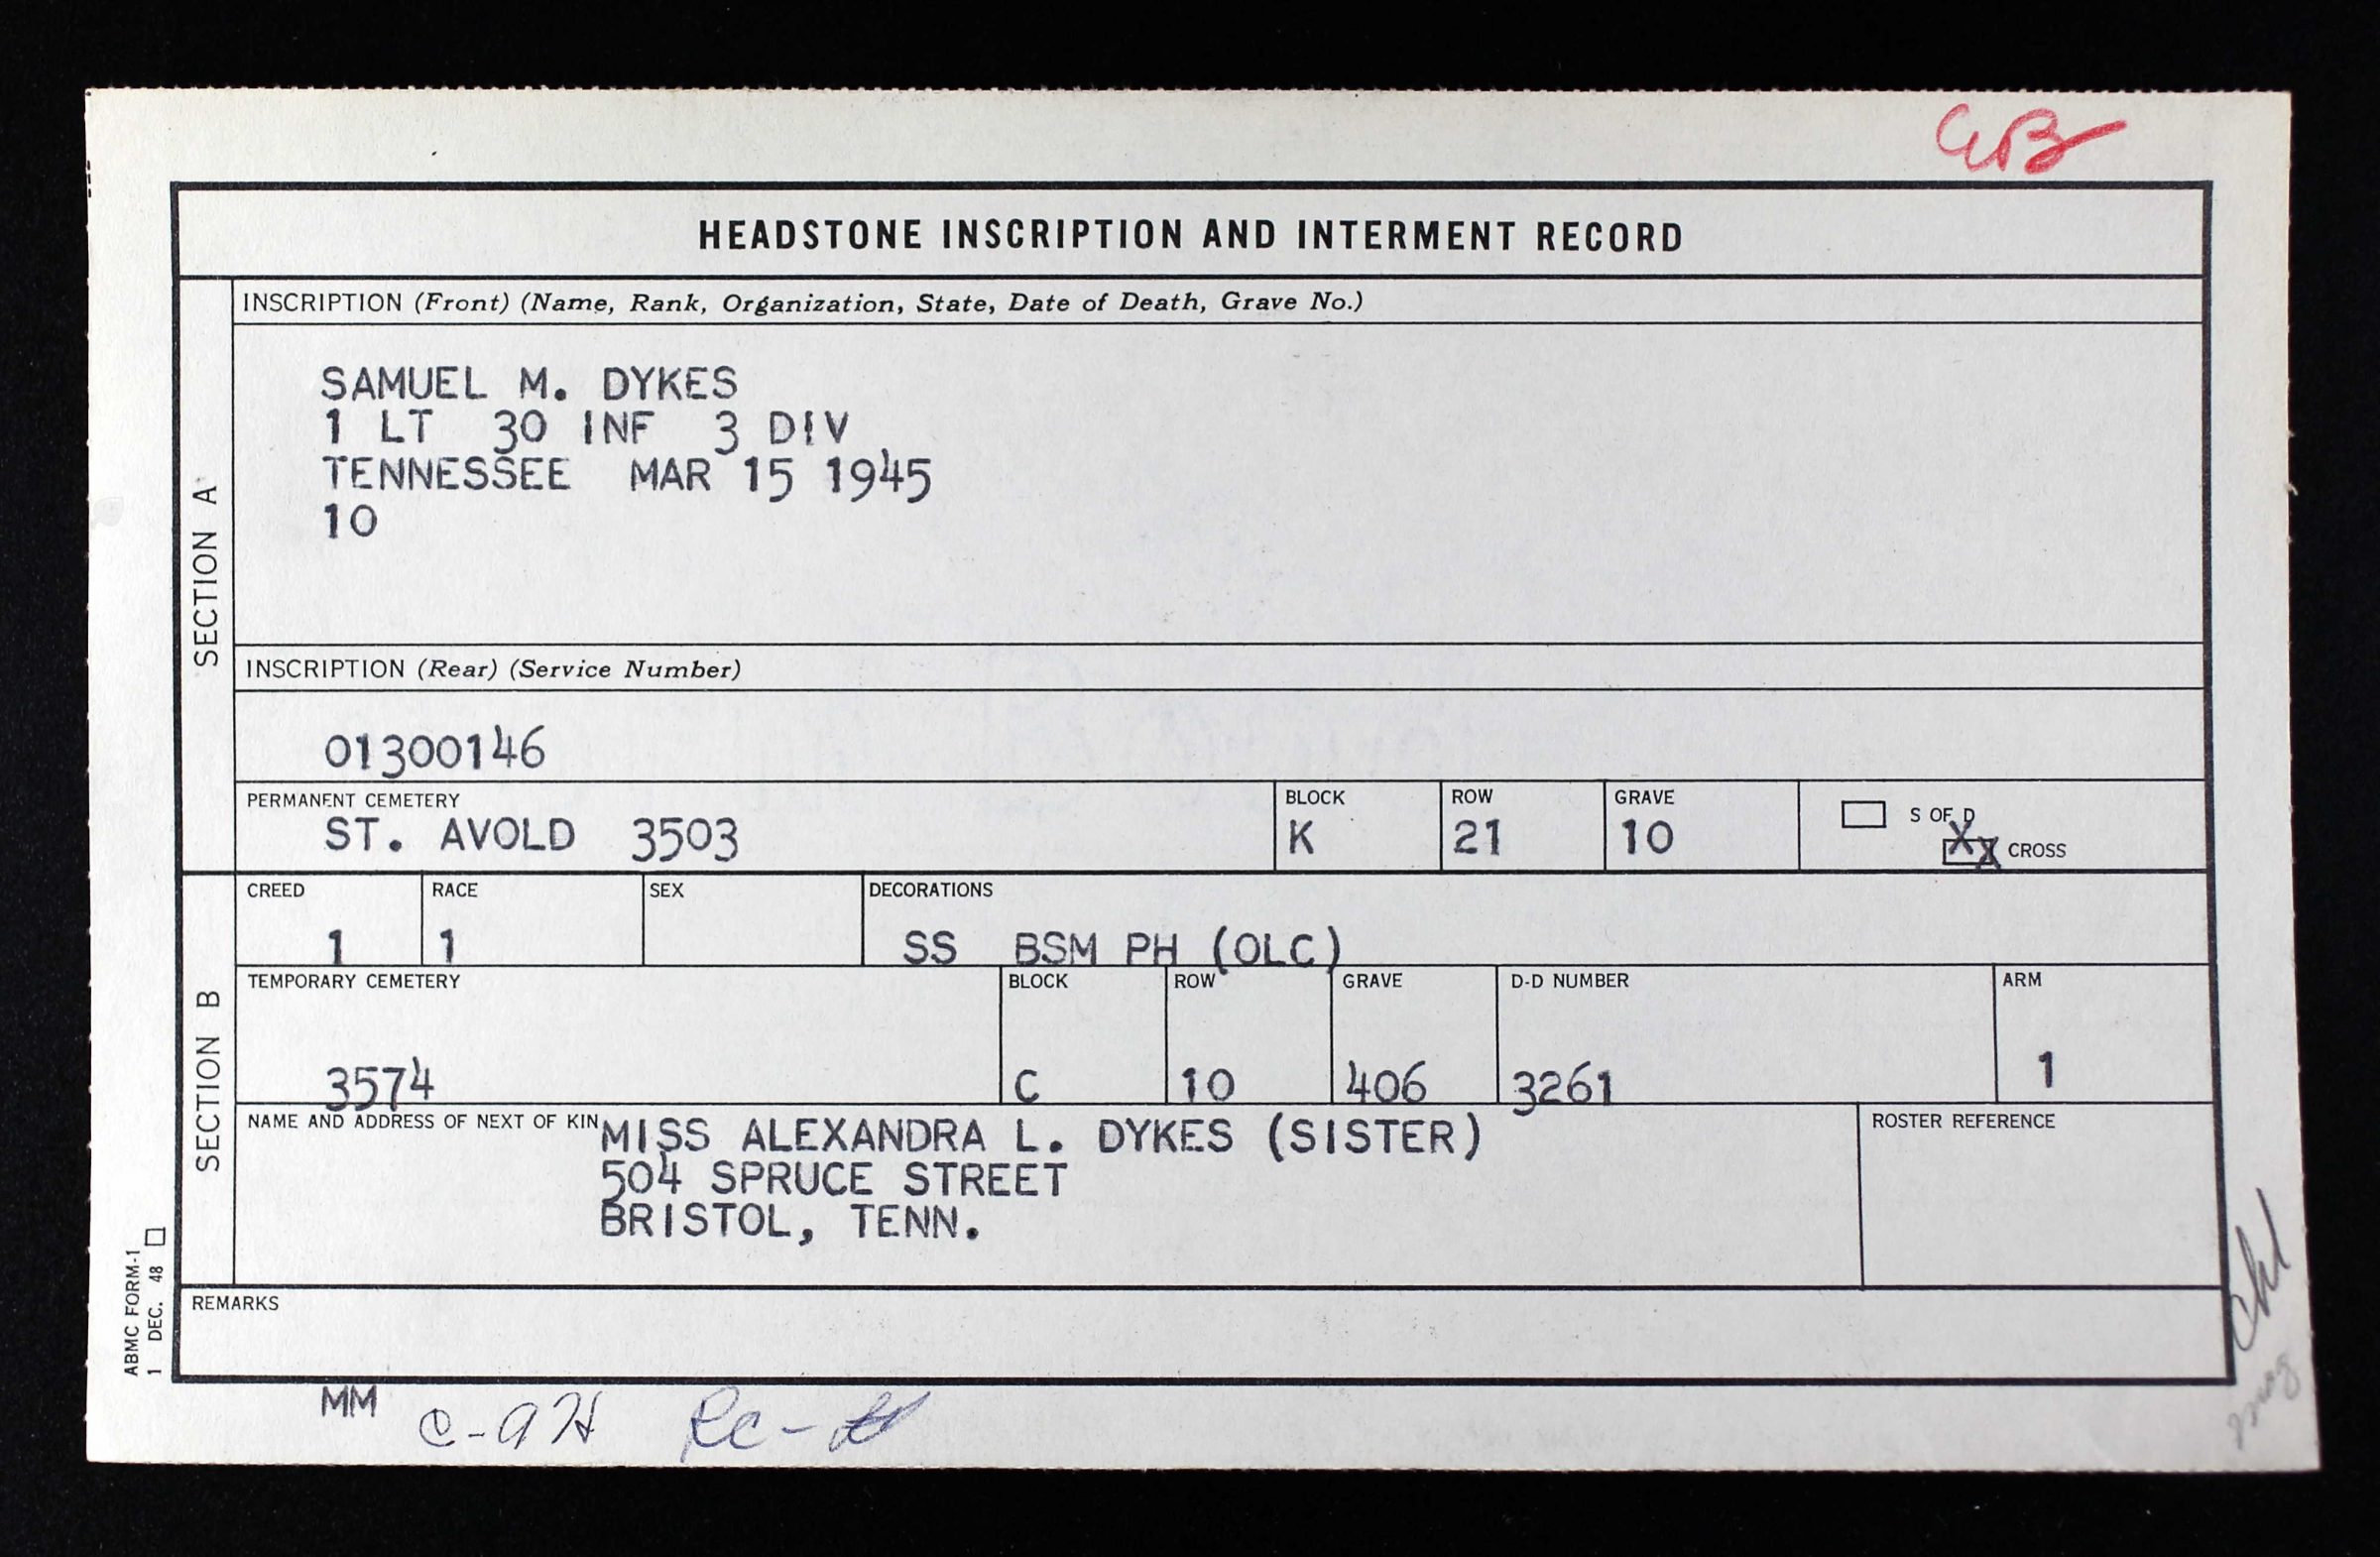 HEADSTONE INSCRIPTION AND INTERMENT RECORD
SECTION A
INSCRIPTION (Front) (Name, Rank, Organization, State, Date of Death, Grave No.)
SAMUEL M. DYKES
1 LT 30 INF 3 DIV
TENNESSEE MAR 15 1945
10
INSCRIPTION (Rear) (Service Number)
01300146
PERMANENT CEMETERY
ST. AVOLD 3503
BLOCK
K
ROW
21
GRAVE
10
S OF D
XX CROSS
SECTION B
CREED
1
RACE
1
SEX
DECORATIONS
SS BSM PH (OLC)
TEMPORARY CEMETERY
3574
BLOCK
C
ROW
10
GRAVE
406
D-D NUMBER
3261
ARM
1
NAME AND ADDRESS OF NEXT OF KIN
MISS ALEXANDRA L. DYKES (SISTER)
504 SPRUCE STREET
BRISTOL, TENN.
ROSTER REFERENCE
REMARKS
ABMC FORM-1
1 DEC. 48
MM